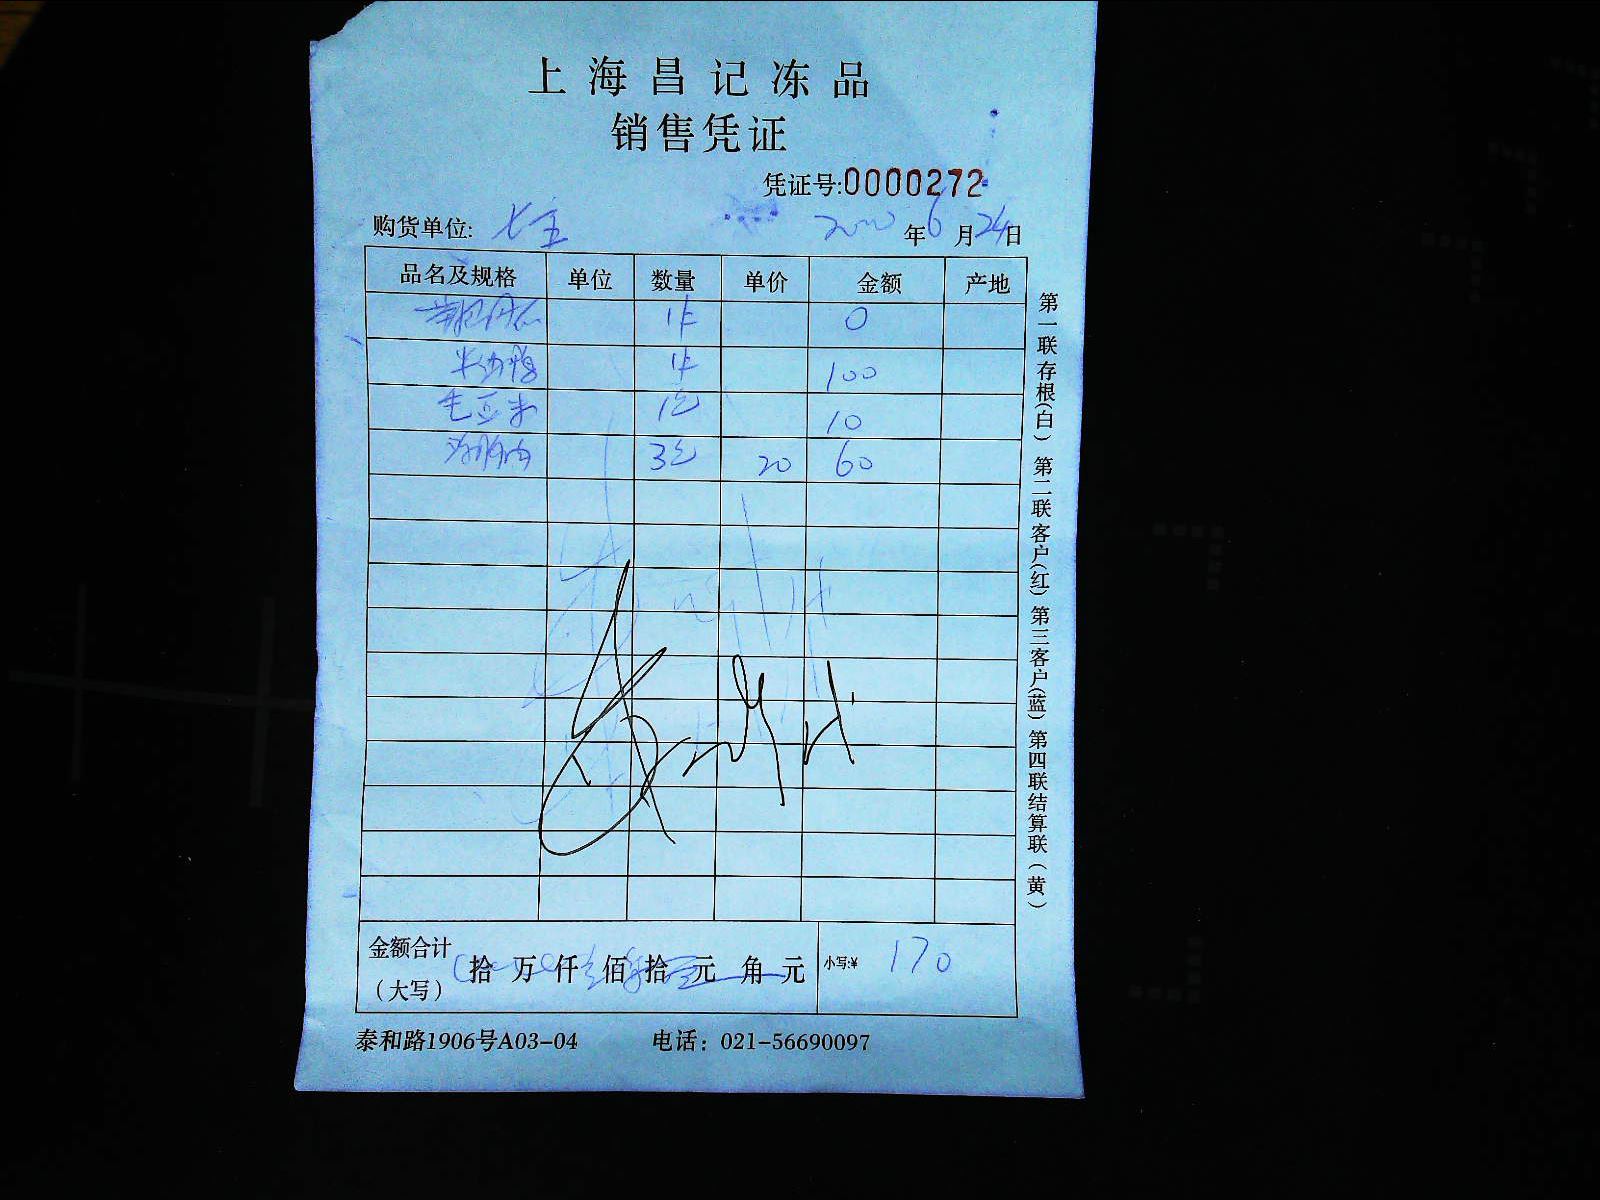 上海昌记冻品
销售凭证
凭证号:0000272
购货单位:
年6月24日
品名及规格 单位 数量 单价 金额 产地
1件 0
1件 100
毛豆米 1包 10
3包 20 60
金额合计
（大写）
拾 万 仟 佰 拾 元 角 元 小写:¥ 170
泰和路1906号A03-04 电话：021-56690097
第一联存根(白) 第二联客户(红) 第三客户(蓝) 第四联结算联(黄)